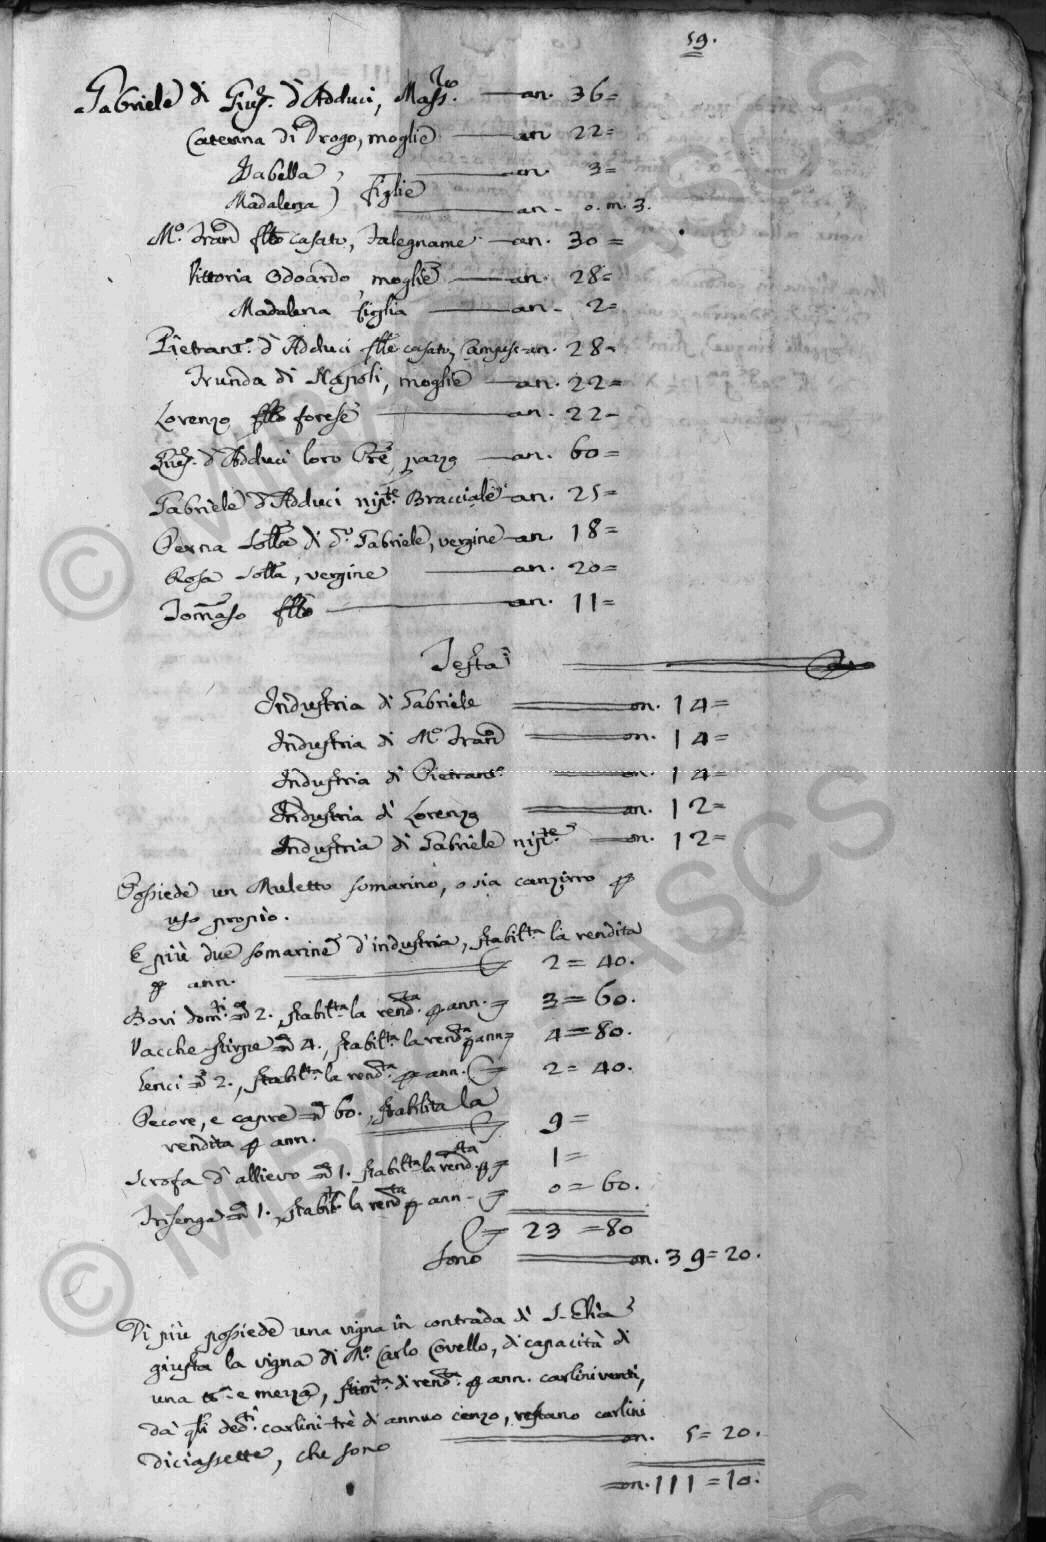 59.
Gabriele di Gius. d'Adduci, Mass.ro — an. 36=
Caterina di Drogo, moglie — an 22=
Isabella ) — an. 3=
Madalena ) figlie — an - 0. m. 3.
M.o Fran.co fratello casato, Falegname — an. 30=
Vittoria Odoardo, moglie — an. 28=
Madalena figlia — an - 2=
Pietrant.o d'Adduci fratello casato, — an. 28-
di Napoli, moglie — an. 22=
Lorenzo fratello forese — an. 22-
Gius. d'Adduci loro Pre, pazzo — an. 60=
Gabriele d'Adduci nip.te Bracciale — an. 25=
Perna Sorella di d.o Gabriele, vergine — an. 18=
Rosa Sorella, vergine — an. 20=
Tomaso fratello — an. 11=
Testa
Industria di Gabriele — on. 14=
Industria di M.o Fran.co — on. 14=
Industria di Pietrant.o — on. 14=
Industria di Lorenzo — on. 12=
Industria di Gabriele nip.te — on. 12=
Possiede un Muletto somarino, o sia canzirro p
uso propio.
E più due somarine d'industria, stabil.ta la rendita
p ann. — 2=40.
Bovi dom.ti n.o 2., stabil.ta la rend.ta p ann. 3=60.
Vacche stirpe n.o 4., stabil.ta la rend.ta p ann 4=80.
Jenci n.o 2., stabil.ta la rend.ta p ann. 2=40.
Pecore, e capre n.o 60., stabilita la
rendita p ann. — 9=
Scrofa d'allievo n.o 1. stabil.ta la rend.ta p 1=
n.o 1., stabil.ta la rend.ta p ann - 0=60.
23=80
Sono — on. 39=20.
Di più possiede una vigna in contrada di S. Elia
giusta la vigna di M.o Carlo Covello, di capacità di
una e mezza, stim.ta di rend.ta p ann. carlini venti,
da qli ded.ti carlini trè di annuo cenzo, restano carlini
diciassette, che sono — on. 5=20.
on. 111=10.
© MIBAC ASCS
© MIBAC ASCS